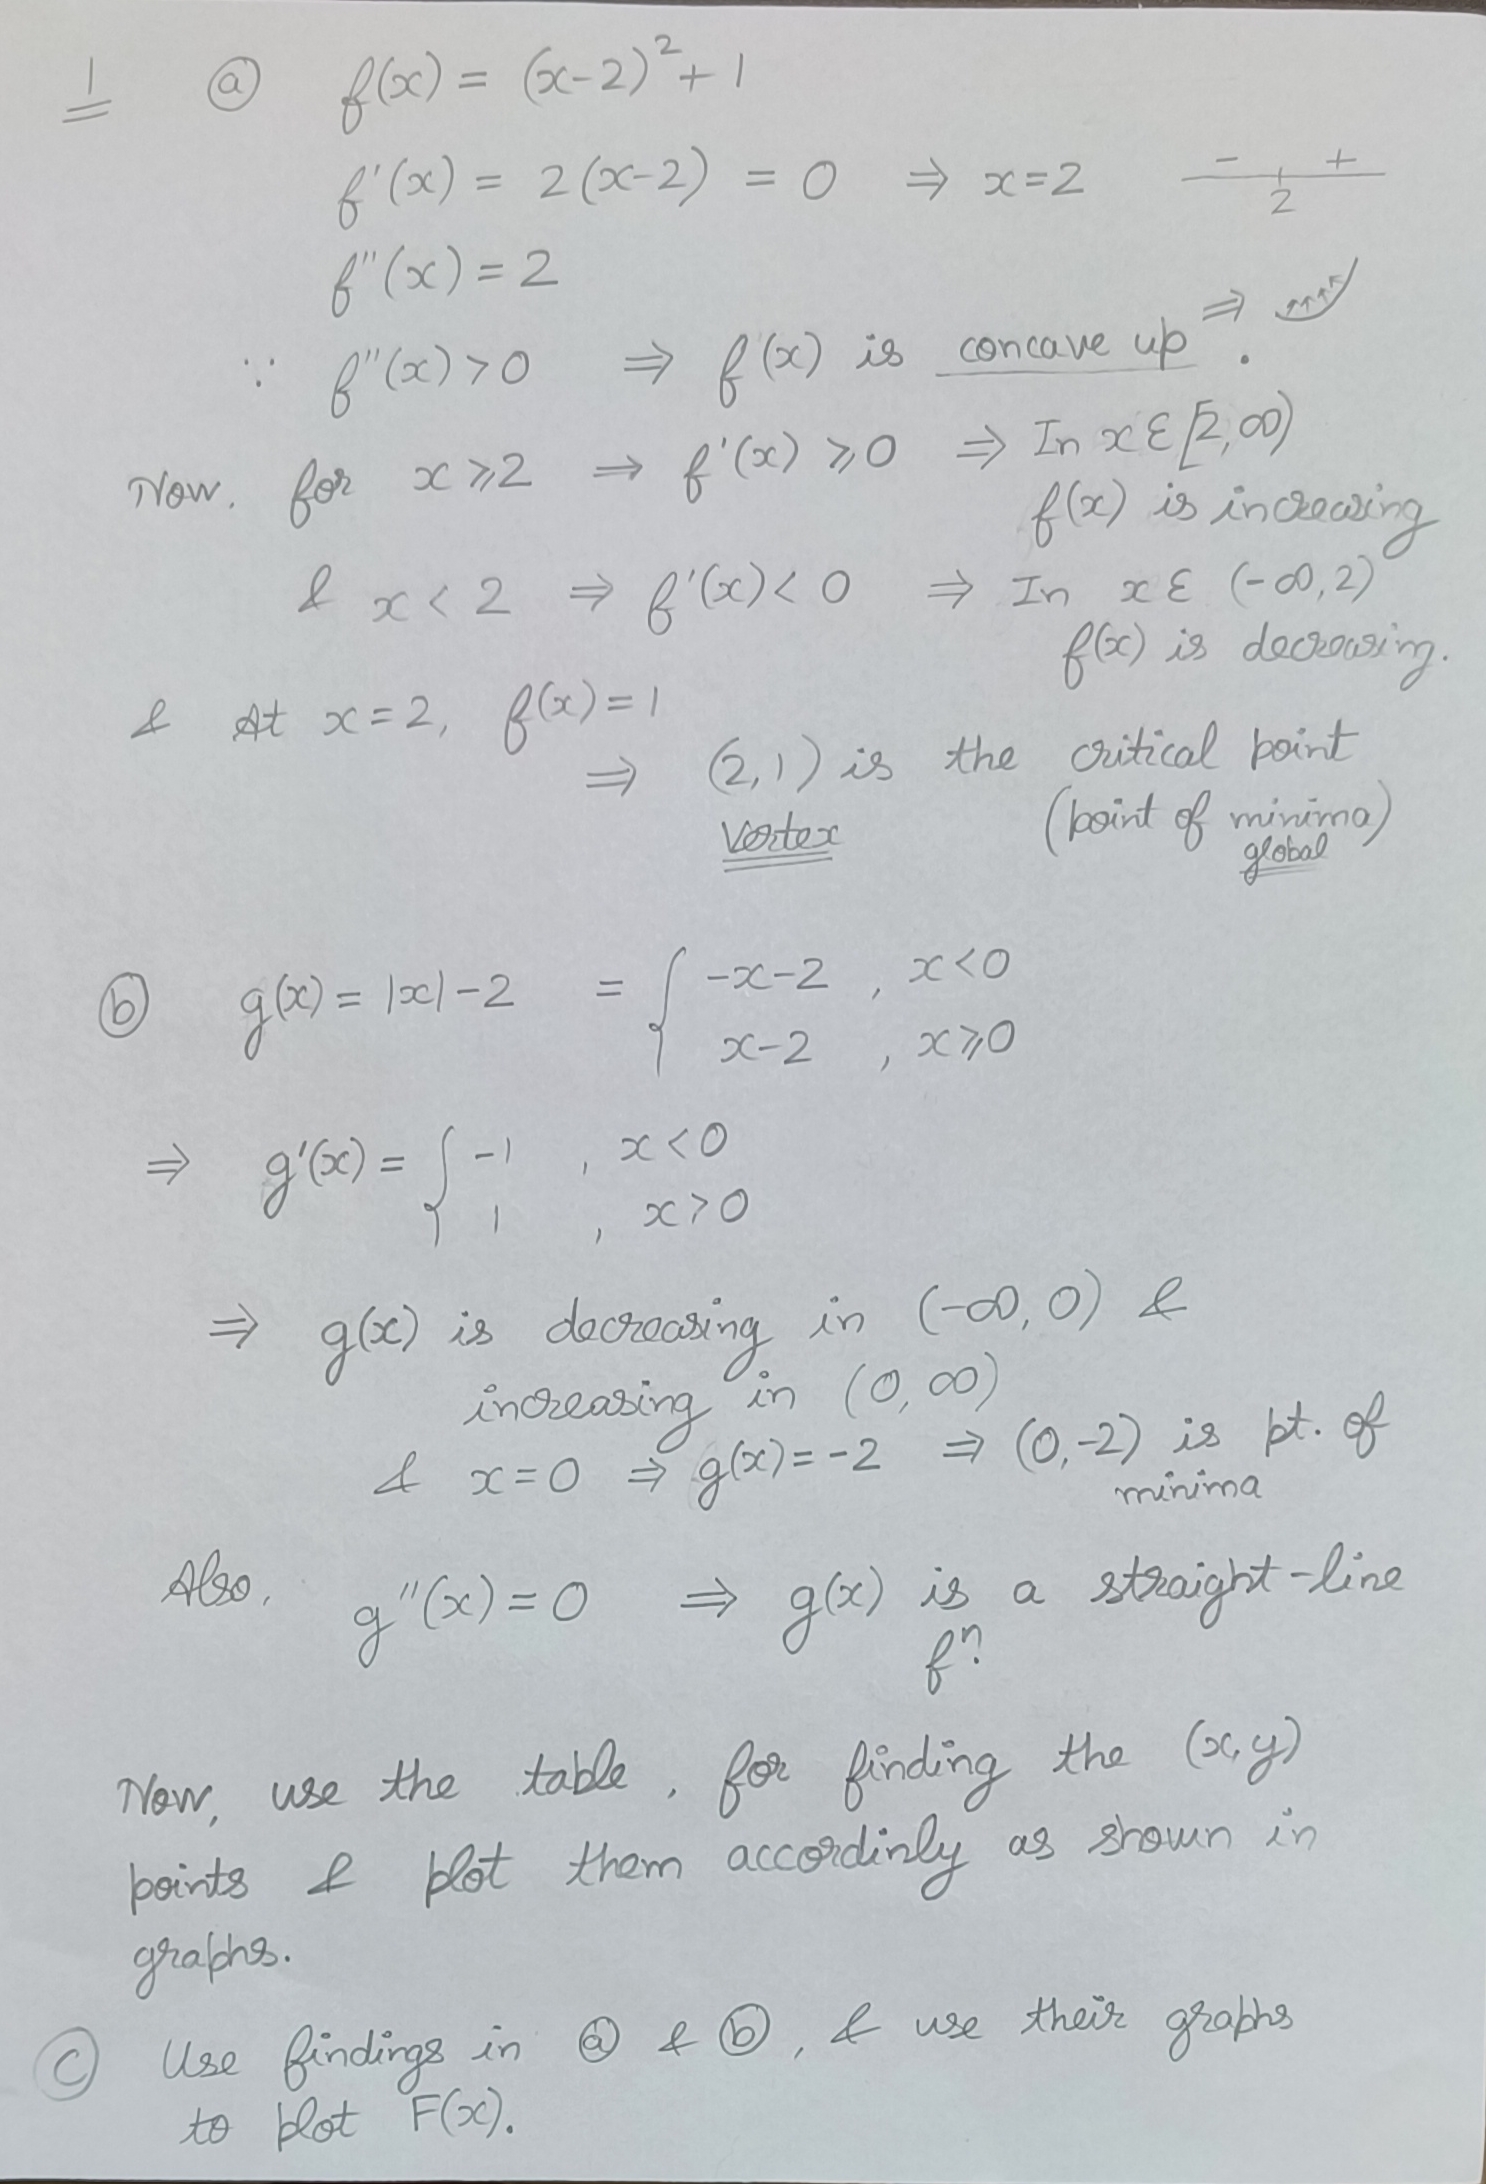 1 ⓐ f(x) = (x-2)²+1
f'(x) = 2(x-2) = 0 ⇒ x=2 - +
2
f''(x) = 2
∵ f''(x) > 0 ⇒ f(x) is concave up. ⇒
Now, for x⩾2 → f'(x) ⩾0 ⇒ In x ε [2,∞)
f(x) is increasing
& x < 2 ⇒ f'(x) < 0 ⇒ In x ε (-∞,2)
f(x) is decreasing.
& At x=2, f(x)=1
⇒ (2,1) is the critical point
Vertex (point of minima)
global
ⓑ g(x) = |x|-2 = { -x-2 , x<0
x-2 , x⩾0
⇒ g'(x) = { -1 , x<0
1 , x>0
⇒ g(x) is decreasing in (-∞,0) &
increasing in (0,∞)
& x=0 ⇒ g(x)=-2 ⇒ (0,-2) is pt. of
minima
Also, g''(x) = 0 ⇒ g(x) is a straight-line
fⁿ.
Now, use the table, for finding the (x,y)
points & plot them accordinly as shown in
graphs.
ⓒ Use findings in ⓐ & ⓑ, & use their graphs
to plot F(x).